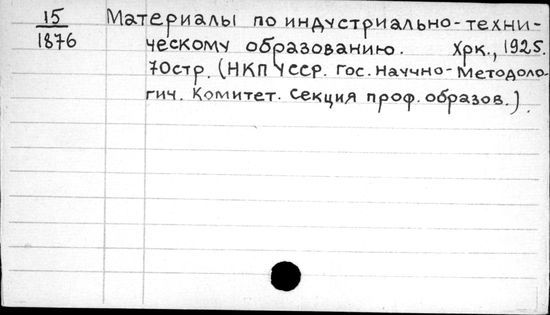 15
1876
Материалы по индустриально-техни-
ческому образованию. Хрк., 1925.
70стр. (НКП УССР. Гос. Научно-Методоло-
гич. Комитет. Секция проф. образов.)